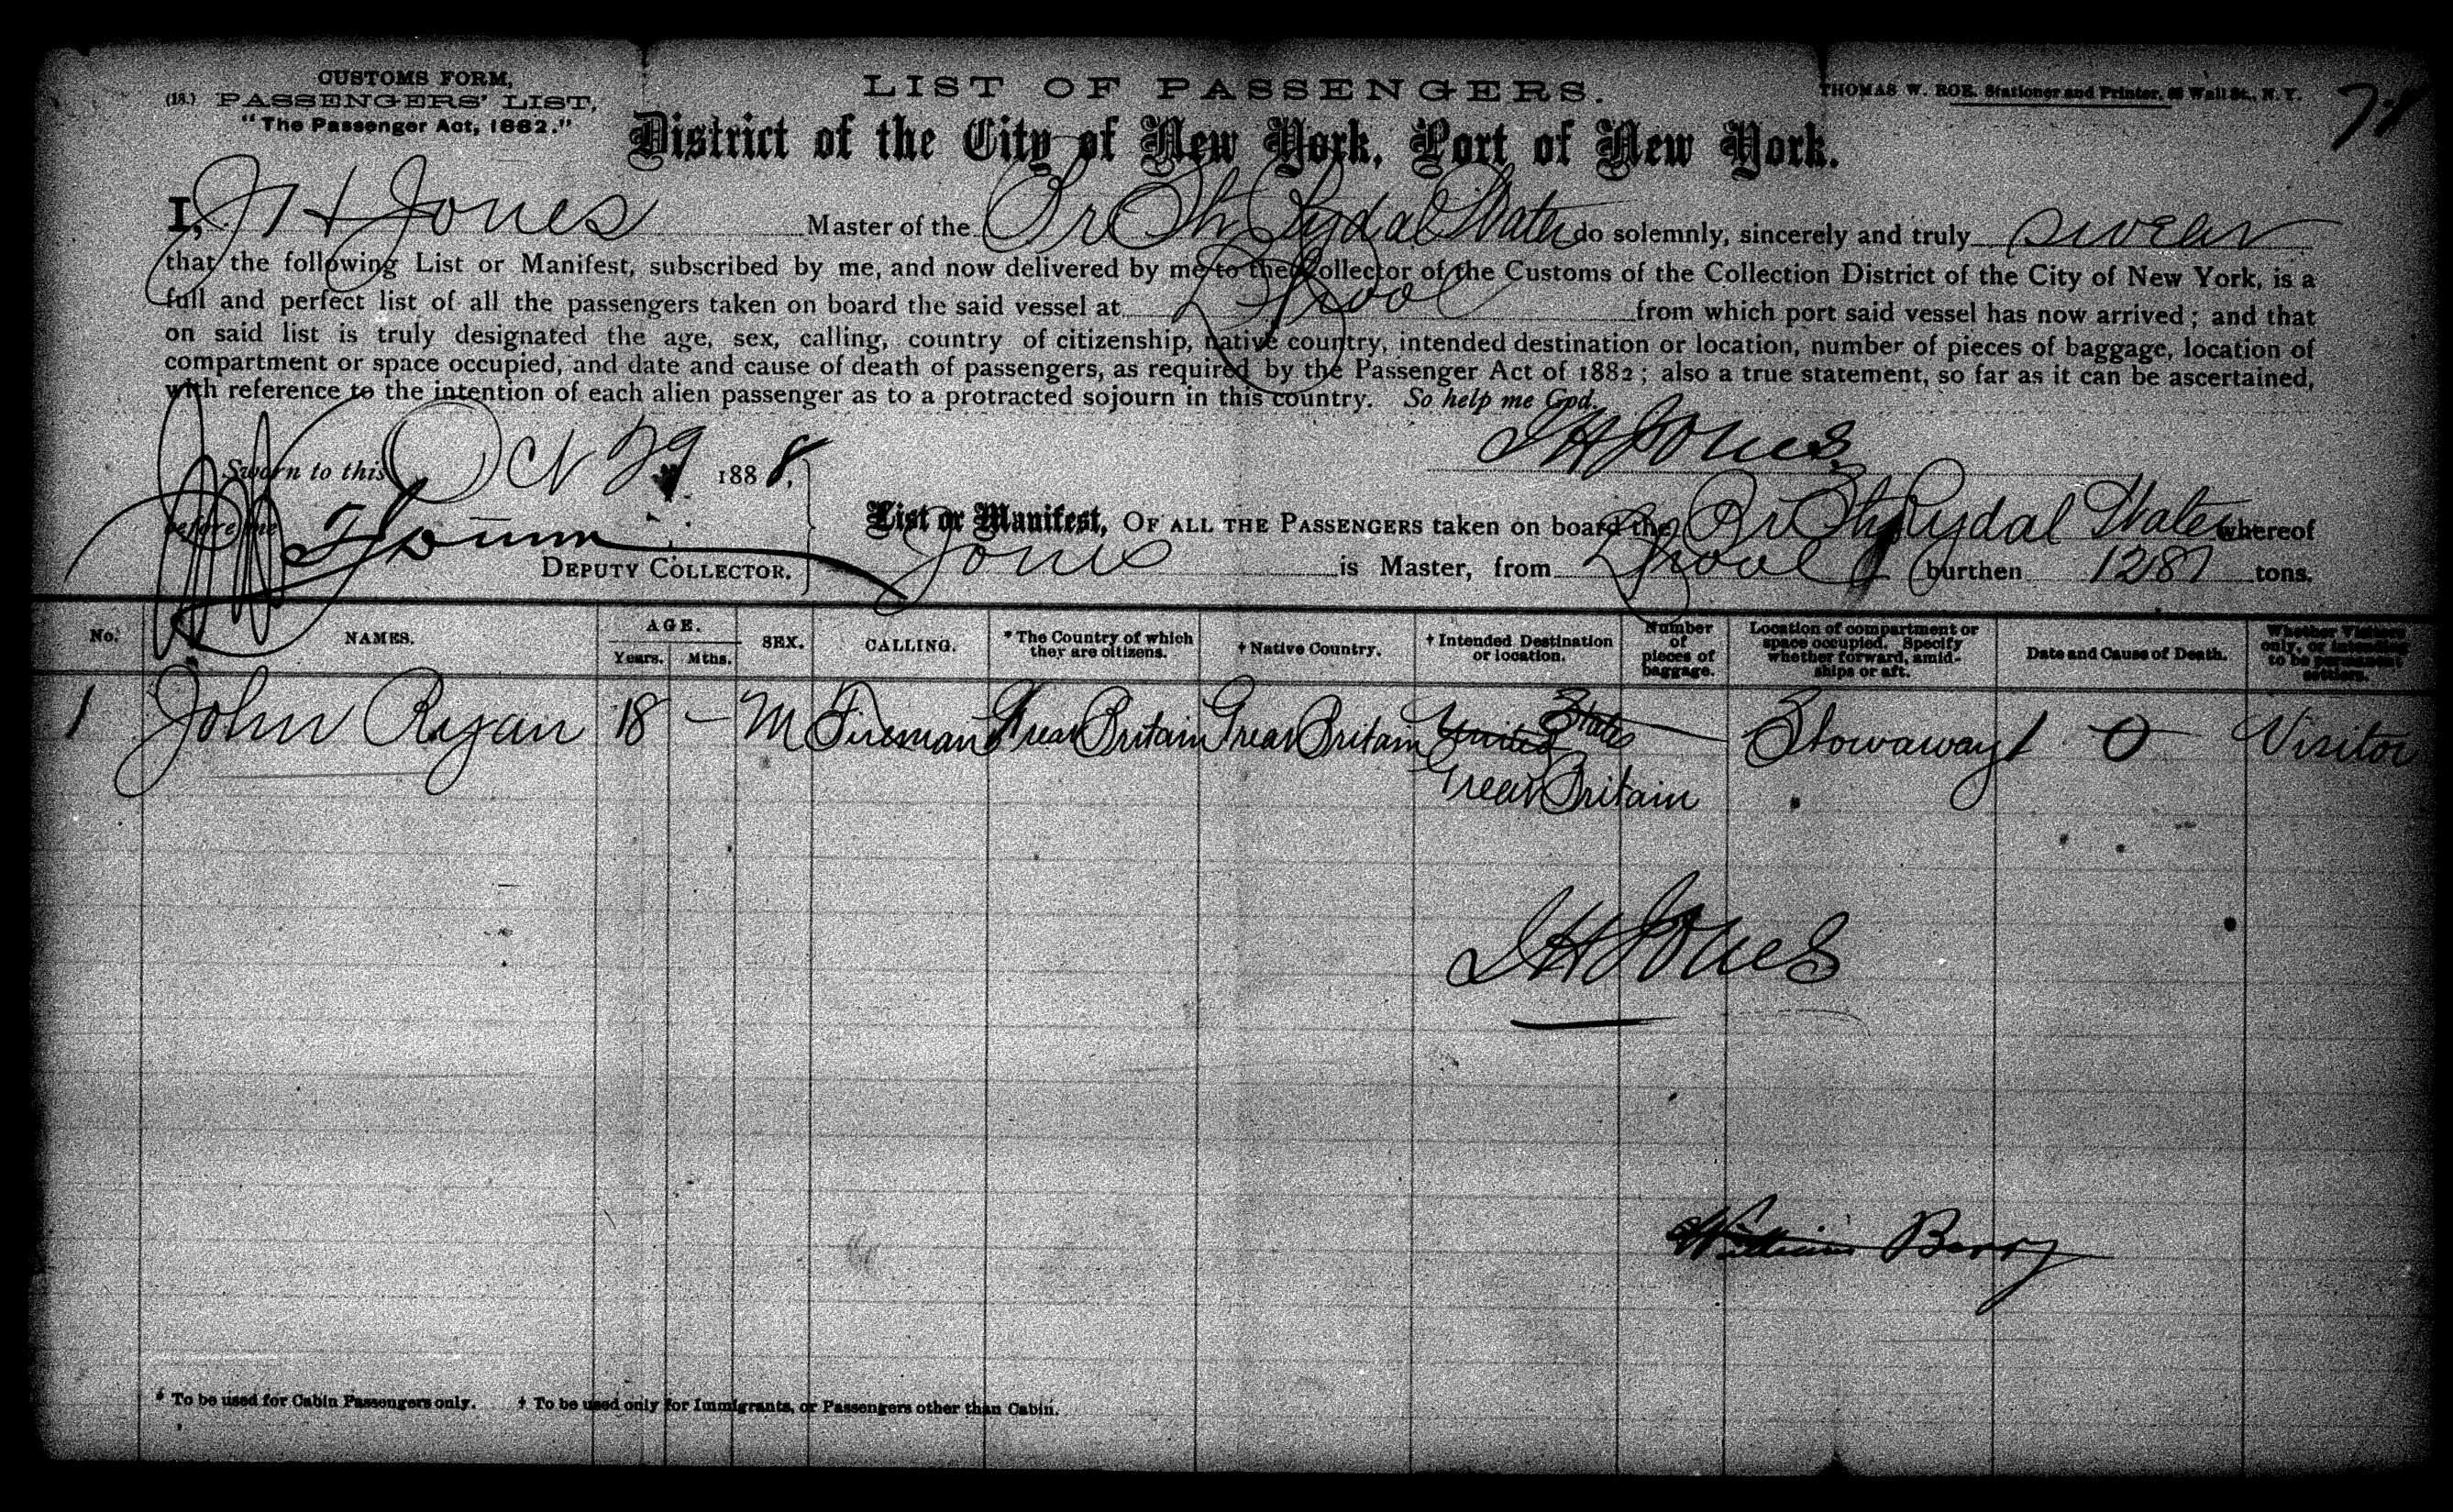 CUSTOMS FORM,
(18.) PASSENGERS' LIST,
"The Passenger Act, 1882."
LIST OF PASSENGERS.
THOMAS W. ROE, Stationer and Printer, Wall St., N. Y.
District of the City of New York, Port of New York.
I, J H Jones Master of the Br Str Rydal Water do solemnly, sincerely and truly swear
that the following List or Manifest, subscribed by me, and now delivered by me to the Collector of the Customs of the Collection District of the City of New York, is a
full and perfect list of all the passengers taken on board the said vessel at L'pool from which port said vessel has now arrived; and that
on said list is truly designated the age, sex, calling, country of citizenship, native country, intended destination or location, number of pieces of baggage, location of
compartment or space occupied, and date and cause of death of passengers, as required by the Passenger Act of 1882; also a true statement, so far as it can be ascertained,
with reference to the intention of each alien passenger as to a protracted sojourn in this country. So help me God.
J H Jones
Sworn to this Oct 29 1888,
before me
DEPUTY COLLECTOR.
List or Manifest, OF ALL THE PASSENGERS taken on board the Br Str Rydal Water whereof
Jones is Master, from L'pool burthen 1287 tons.
No. NAMES. AGE. Years. Mths. SEX. CALLING. * The Country of which they are citizens. † Native Country. † Intended Destination or location. Number of pieces of baggage. Location of compartment or space occupied. Specify whether forward, amidships or aft. Date and Cause of Death. Whether Visitors only, or intending to be permanent settlers.
1 John Ryan 18 — M Fireman Great Britain Great Britain United States — Stowaway 0 Visitor
Great Britain
J H Jones
William Barry
* To be used for Cabin Passengers only. † To be used only for Immigrants, or Passengers other than Cabin.